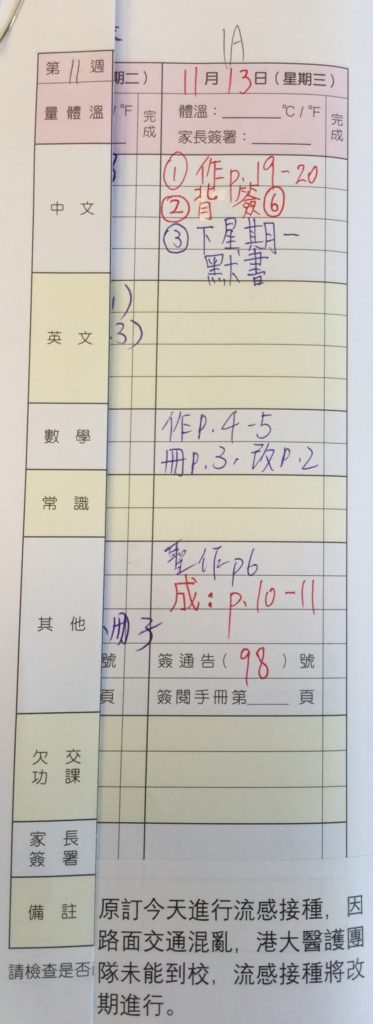 1A
第 11 週
期二)
11月13日(星期三)
量體溫
/°F
完成
體溫：______°C/°F
家長簽署：______
完成
中文
① 作p.19-20
② 背 簽⑥
③ 下星期一
默書
英文
1)
.3)
數學
作p.4-5
冊p.3、改p.2
常識
其他
聖作p6
成：p.10-11
冊子
號
簽通告( 98 )號
頁
簽閱手冊第____頁
欠交功課
家長簽署
備註
請檢查是否
原訂今天進行流感接種，因
路面交通混亂，港大醫護團
隊未能到校，流感接種將改
期進行。